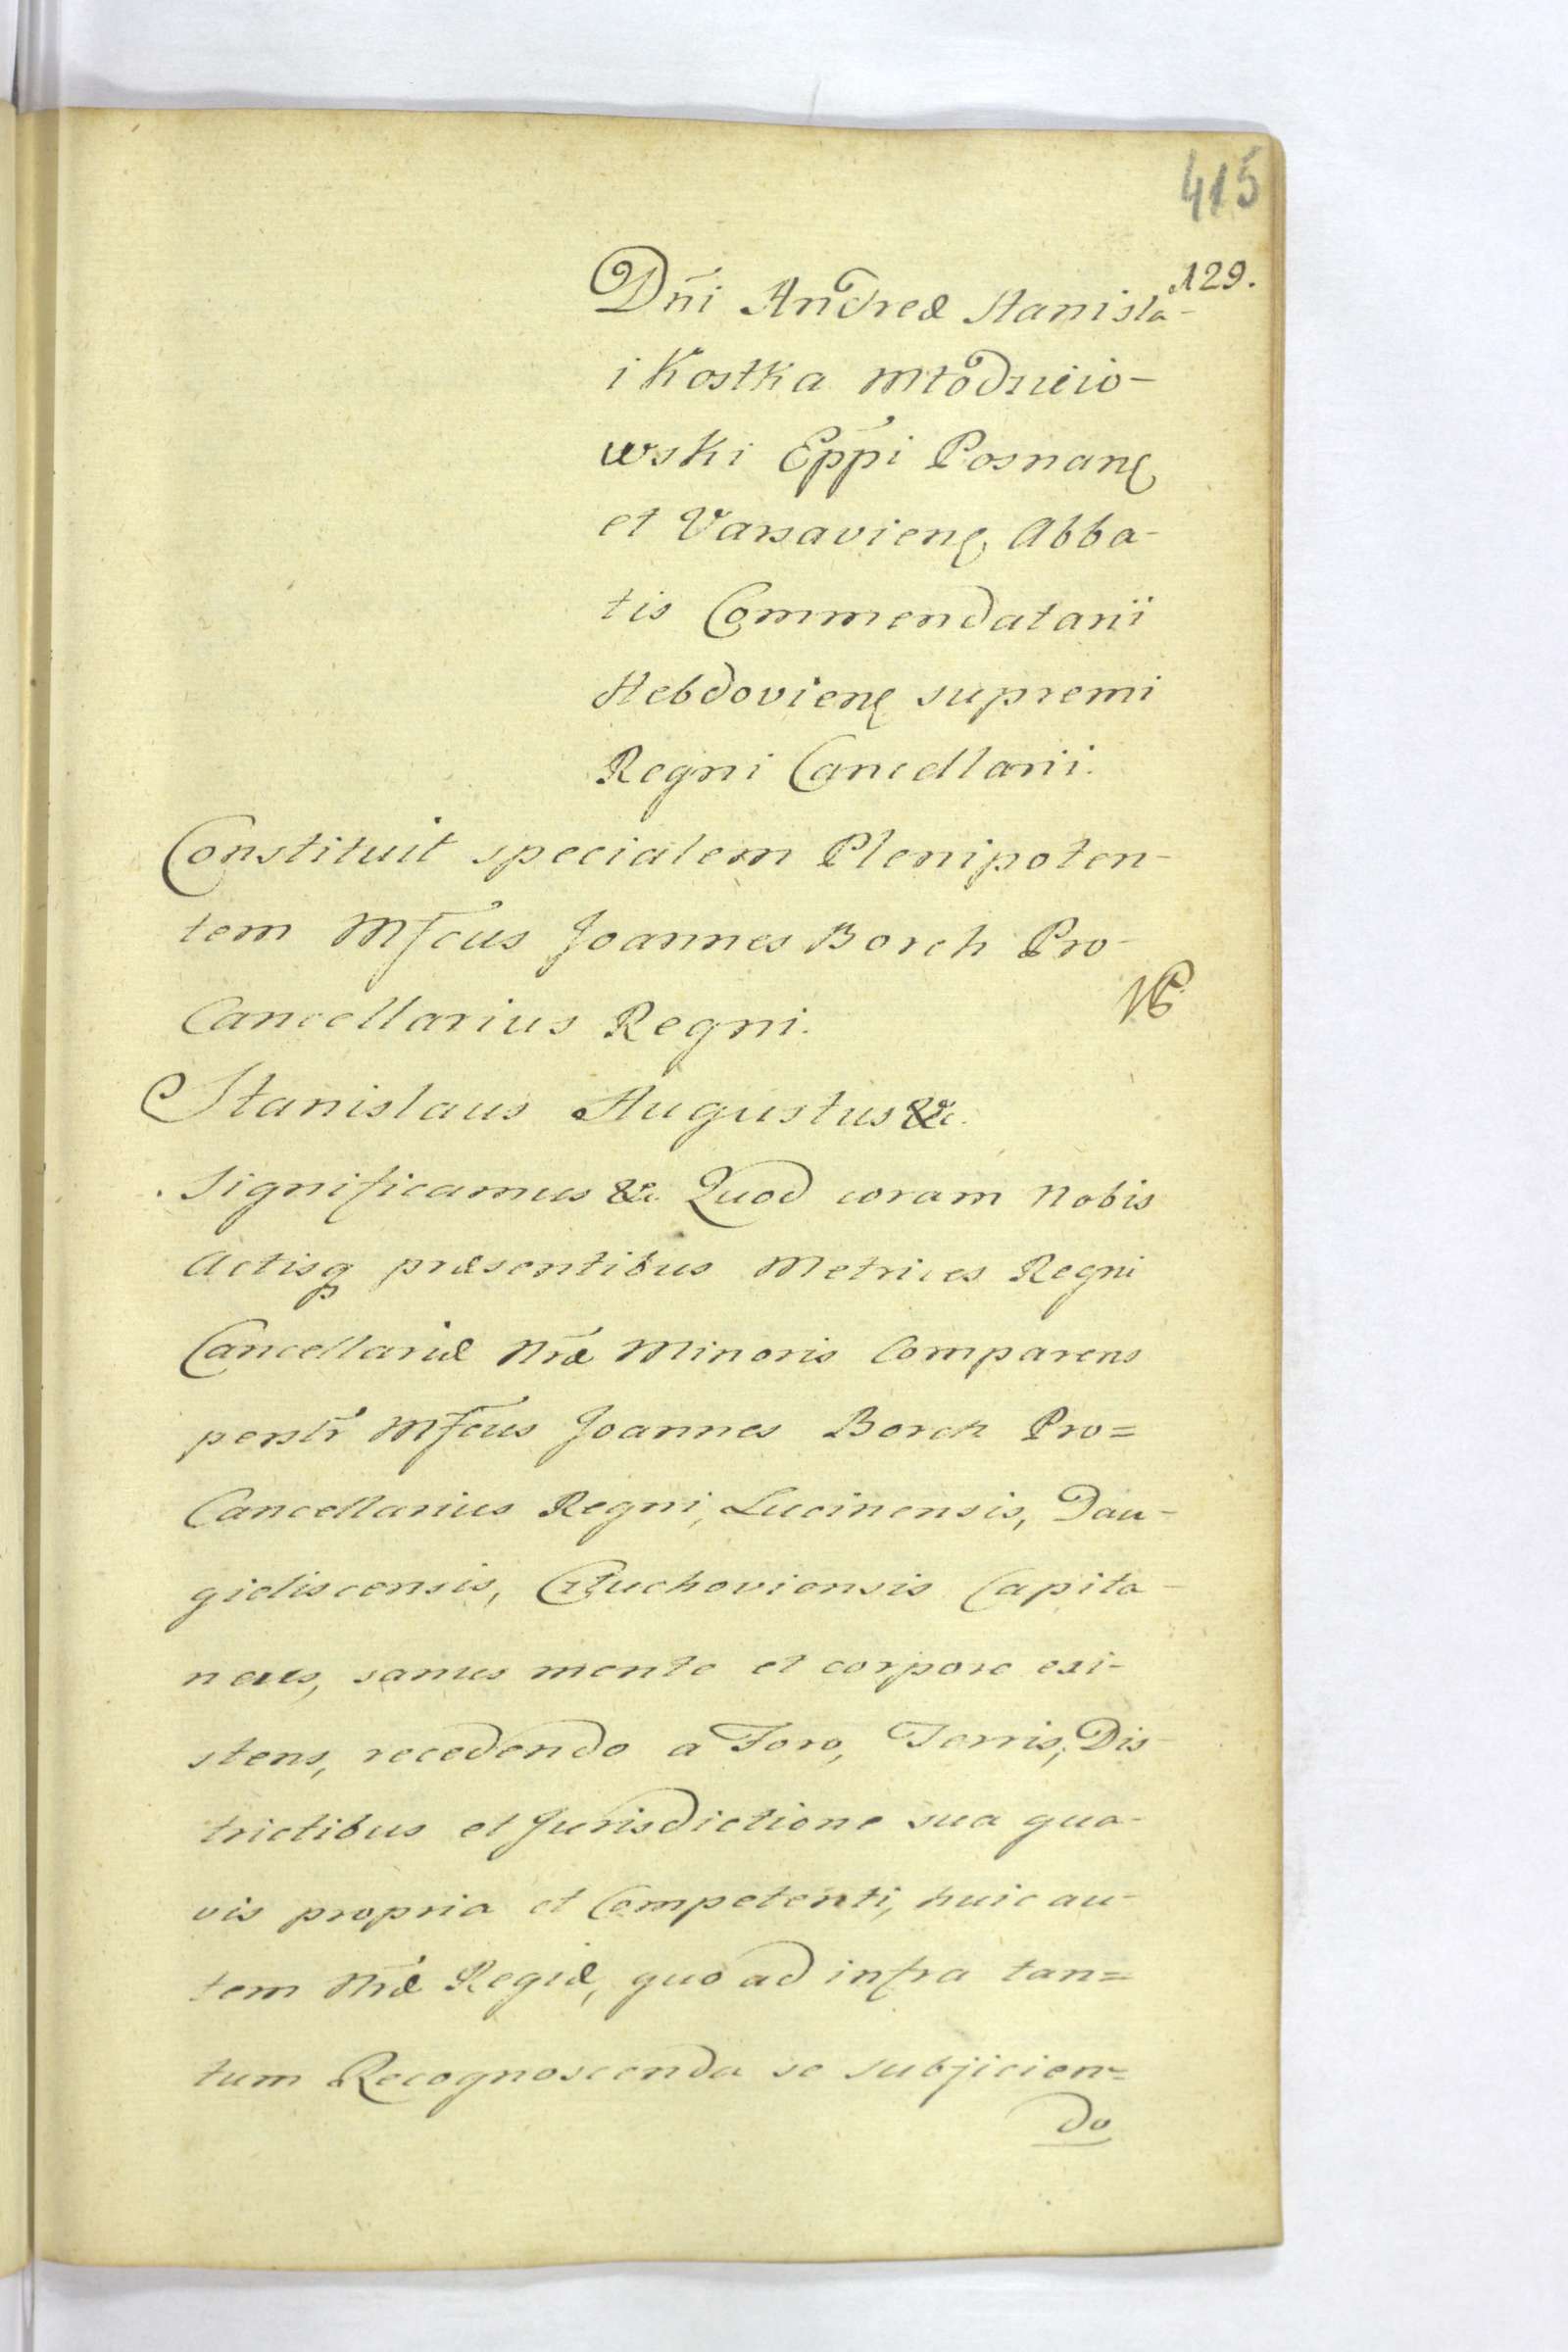 415
129.
Dñi Andreæ Stanisla-
i Kostka Młodzieio-
wski Eppi Posnanę
et Varsavienę, Abba-
tis Commendatarii
Hebdovienę supremi
Regni Cancellarii.
Constituit specialem Plenipoten-
tem Mfcus Joannes Borch Pro-
Cancellarius Regni.
Stanislaus Augustus &c.
Significamus &c. Quod coram Nobis
Actisq præsentibus Metrices Regni
Cancellariæ Nræ Minoris Comparens
persłr Mfcus Joannes Borch Pro=
Cancellarius Regni, Lucinensis, Dau-
gieliscensis, Capita-
neus, sanus mente et corpore exi-
stens, recedendo a Foro, Terris, Dis-
trictibus et Jurisdictione sua qua-
vis propria et Competenti, huic au-
tem Nræ Regiæ, quo ad infra tan=
tum Recognoscenda se subjicien=
do